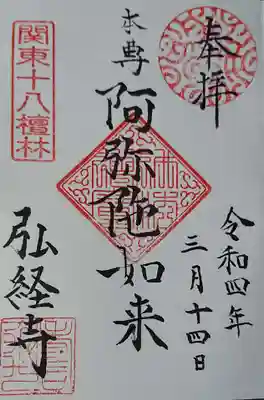 奉拝
令和四年
三月十四日
本尊
阿弥陀如来
関東十八檀林
弘経寺